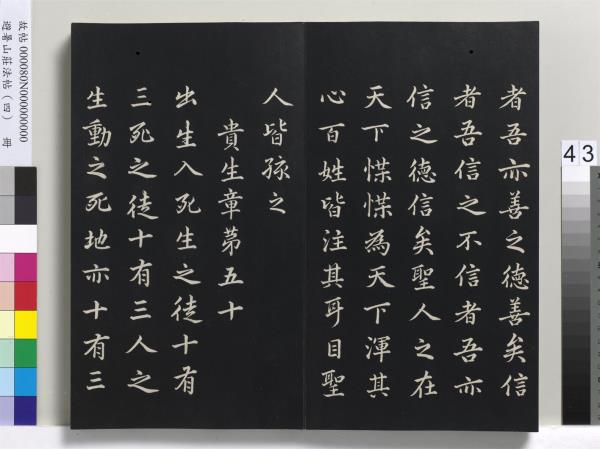 者吾亦善之德善矣信
者吾信之不信者吾亦
信之德信矣聖人之在
天下惵惵為天下渾其
心百姓皆注其耳目聖
人皆孩之
貴生章第五十
出生入死生之徒十有
三死之徒十有三人之
生動之死地亦十有三
故帖 000080N000000000
避暑山莊法帖(四) 冊
43